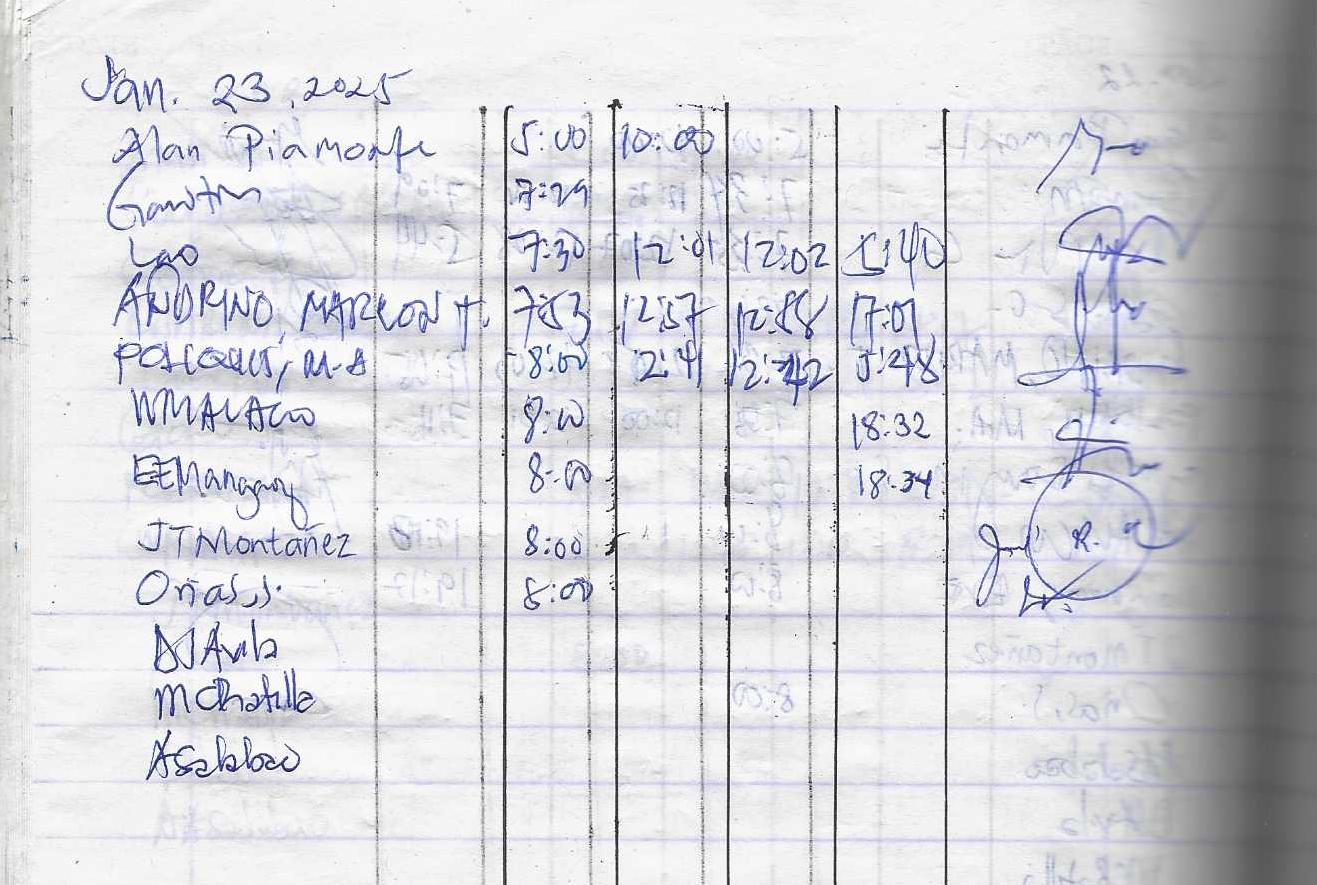 Jan. 23, 2025
Alan Piamonte 5:00 10:00
7:29
Lao 7:30 12:01 12:02 5:40
ANDRINO, MARLON T. 7:53 12:57 12:58 17:01
M.A 8:00 12:41 12:42 5:48
WMALACO 8:00 18:32
EEMangany 8:00 18:34
JTMontañez 8:00
Oñas, J. 8:00
DJ Avila
MCRatilla
ASalabao